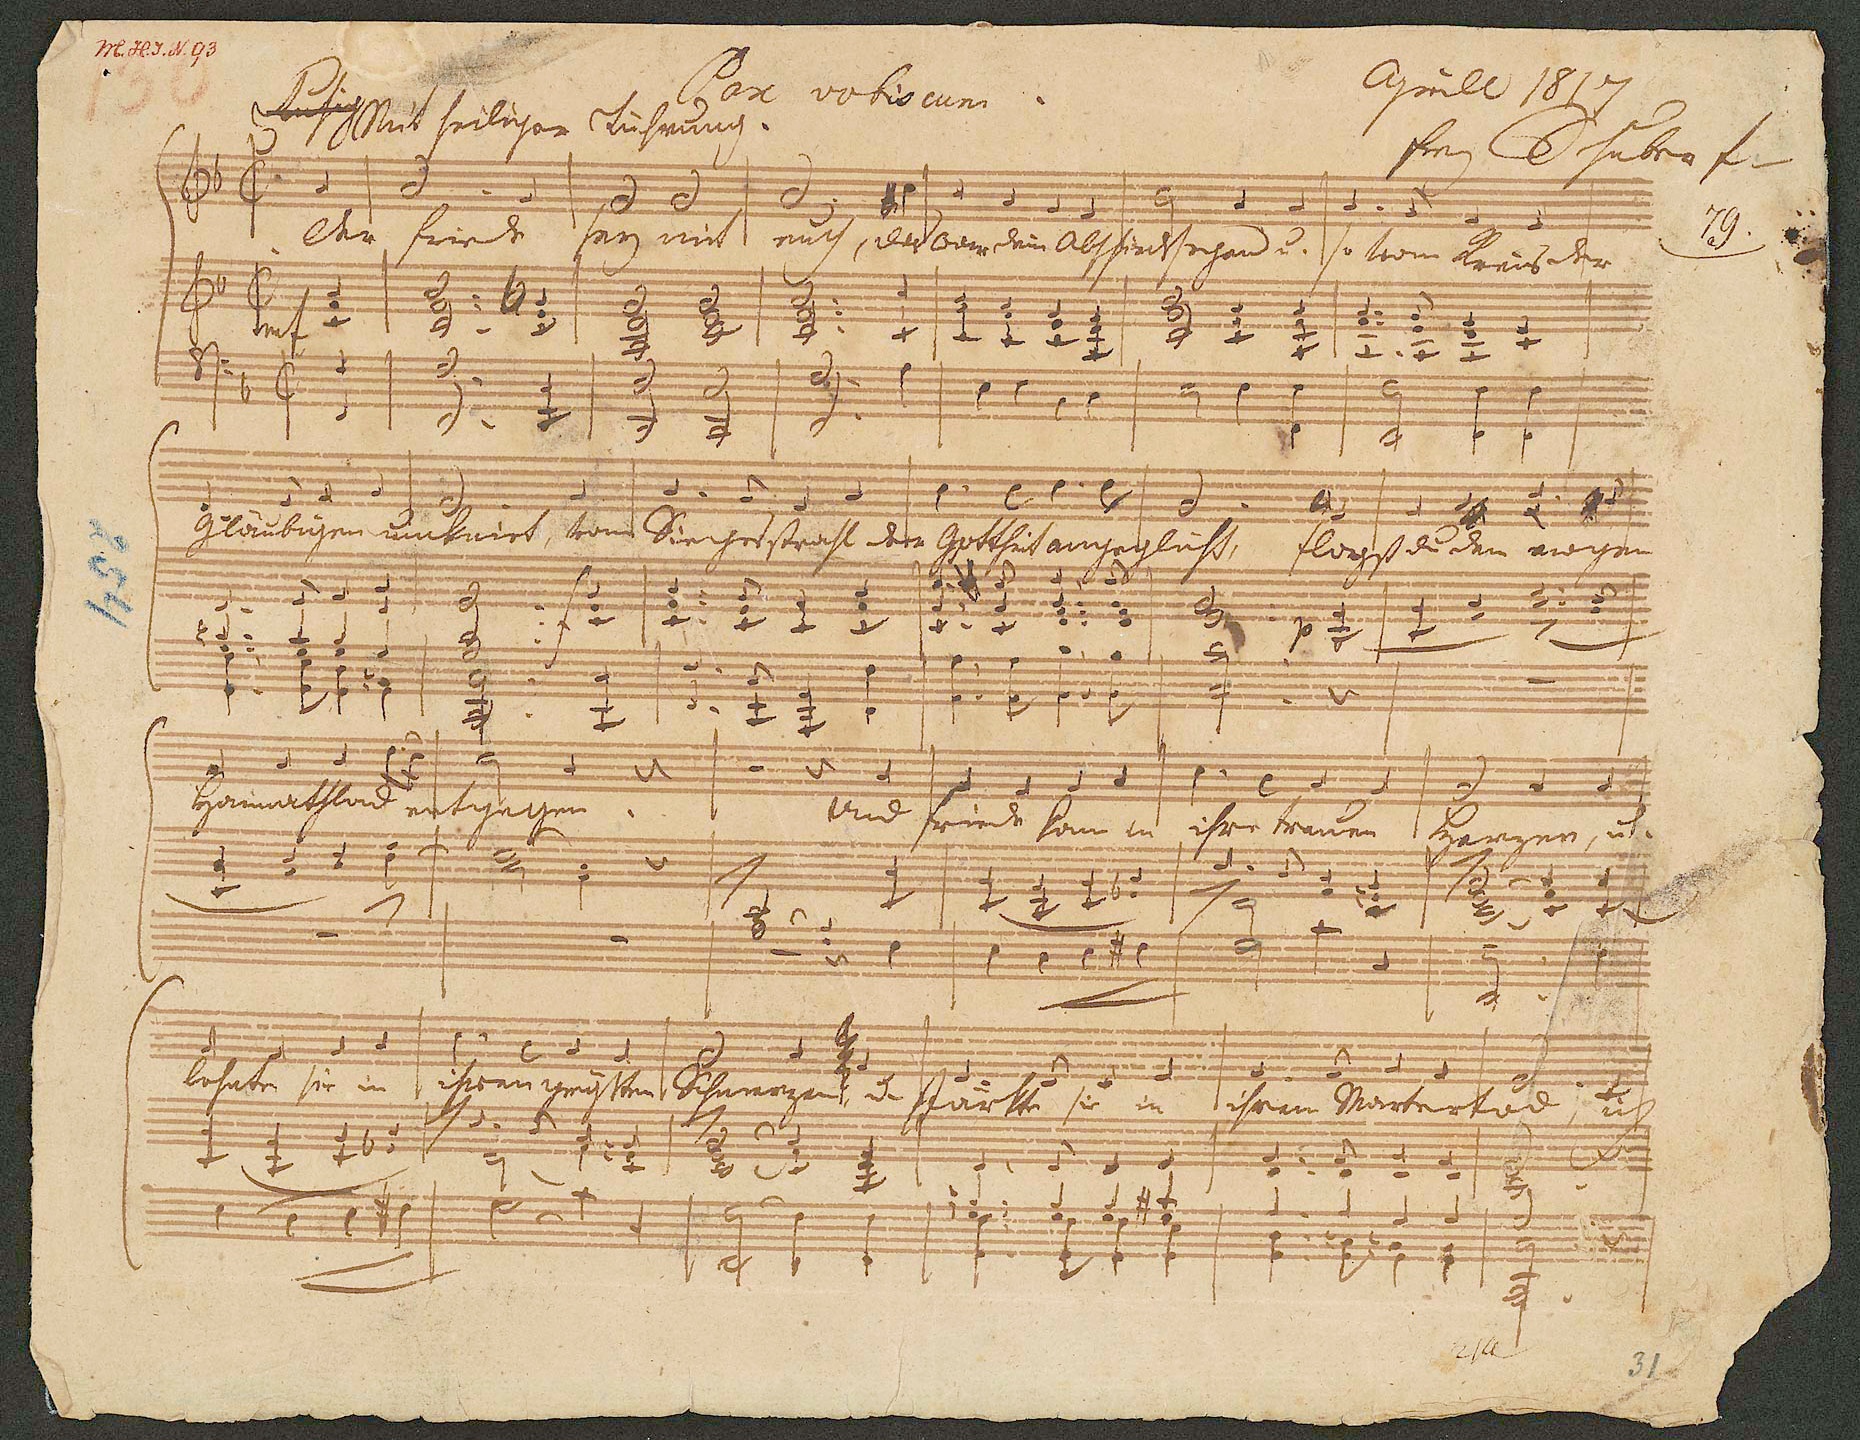 M.H.I.N. 93
130
Pax vobiscum.
Aprill 1817
Ruhig Mit heiliger Rührung.
Franz Schubert
79.
Der Friede sey mit euch, das war dein Abschiedssegen u. so vom Kreis der
mf
Gläubigen umkniet, vom Siegesstrahl der Gottheit angeglüht, flogst du dem ewigen
f
p
Heimathland entgegen.
Und Friede kam in ihre treuen Herzen, u.
lohnte sie in ihren größten Schmerzen, u. stärkte sie in ihrem Martertod,
31